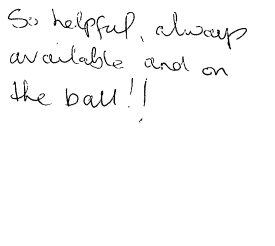 So helpful, always
available and on
the ball!!